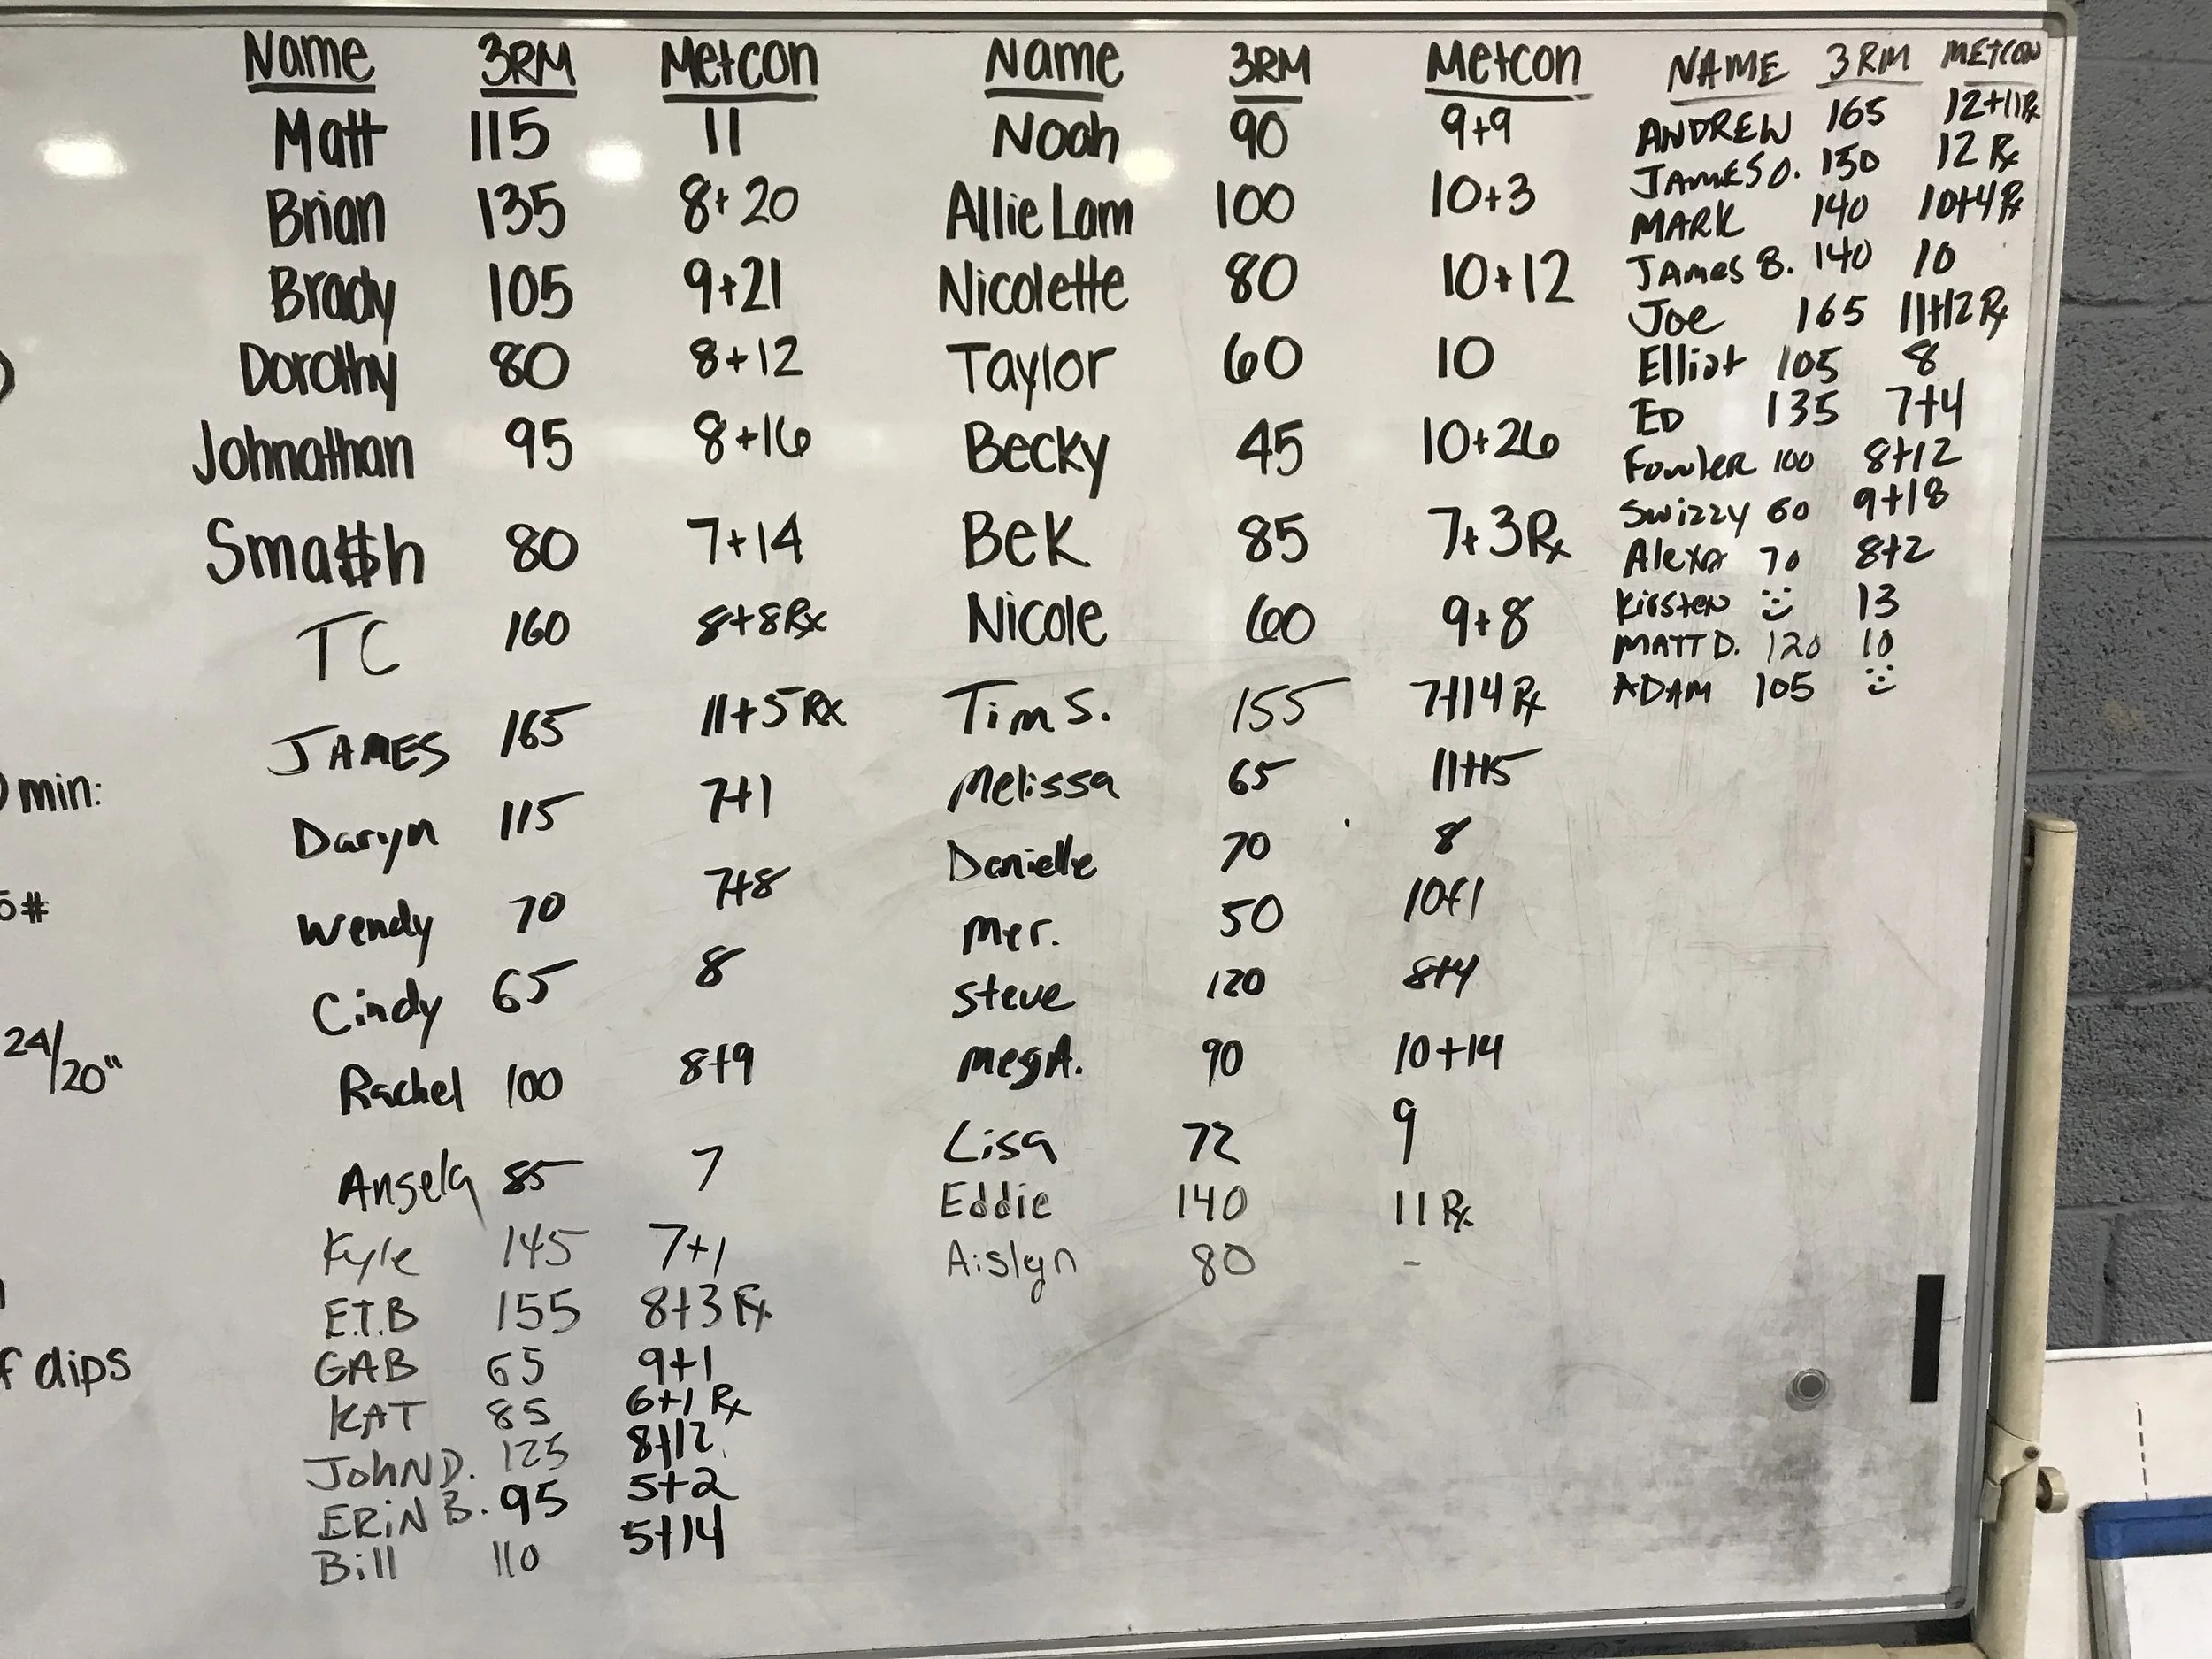 Name 3RM Metcon
Matt 115 11
Brian 135 8+20
Brady 105 9+21
Dorothy 80 8+12
Johnathan 95 8+16
Sma$h 80 7+14
TC 160 8+8 Rx
JAMES 165 11+5 Rx
Daryn 115 7+1
Wendy 70 7+8
Cindy 65 8
Rachel 100 8+9
Angela 85 7
Kyle 145 7+1
E.T.B 155 8+3 Rx
GAB 65 9+1
KAT 85 6+1 Rx
JOHN D. 125 8+12
ERiN B. 95 5+2
Bill 110 5+14
Name 3RM Metcon
Noah 90 9+9
Allie Lam 100 10+3
Nicolette 80 10+12
Taylor 60 10
Becky 45 10+26
BeK 85 7+3 Rx
Nicole 60 9+8
Tim S. 155 7+14 Rx
Melissa 65 11+15
Danielle 70 8
Mer. 50 10+1
Steve 120 8+4
Meg A. 90 10+14
Lisa 72 9
Eddie 140 11 Rx
Aislyn 80 -
NAME 3RM METCON
ANDREW 165 12+11 Rx
JAMES O. 150 12 Rx
MARK 140 10+4 Rx
JAmes B. 140 10
Joe 165 11+12 Rx
Elliot 105 8
ED 135 7+4
Fowler 100 8+12
Swizzy 60 9+18
Alexa 70 8+2
Kirsten 13
MATT D. 120 10
ADAM 105
min:
5#
24/20"
f dips